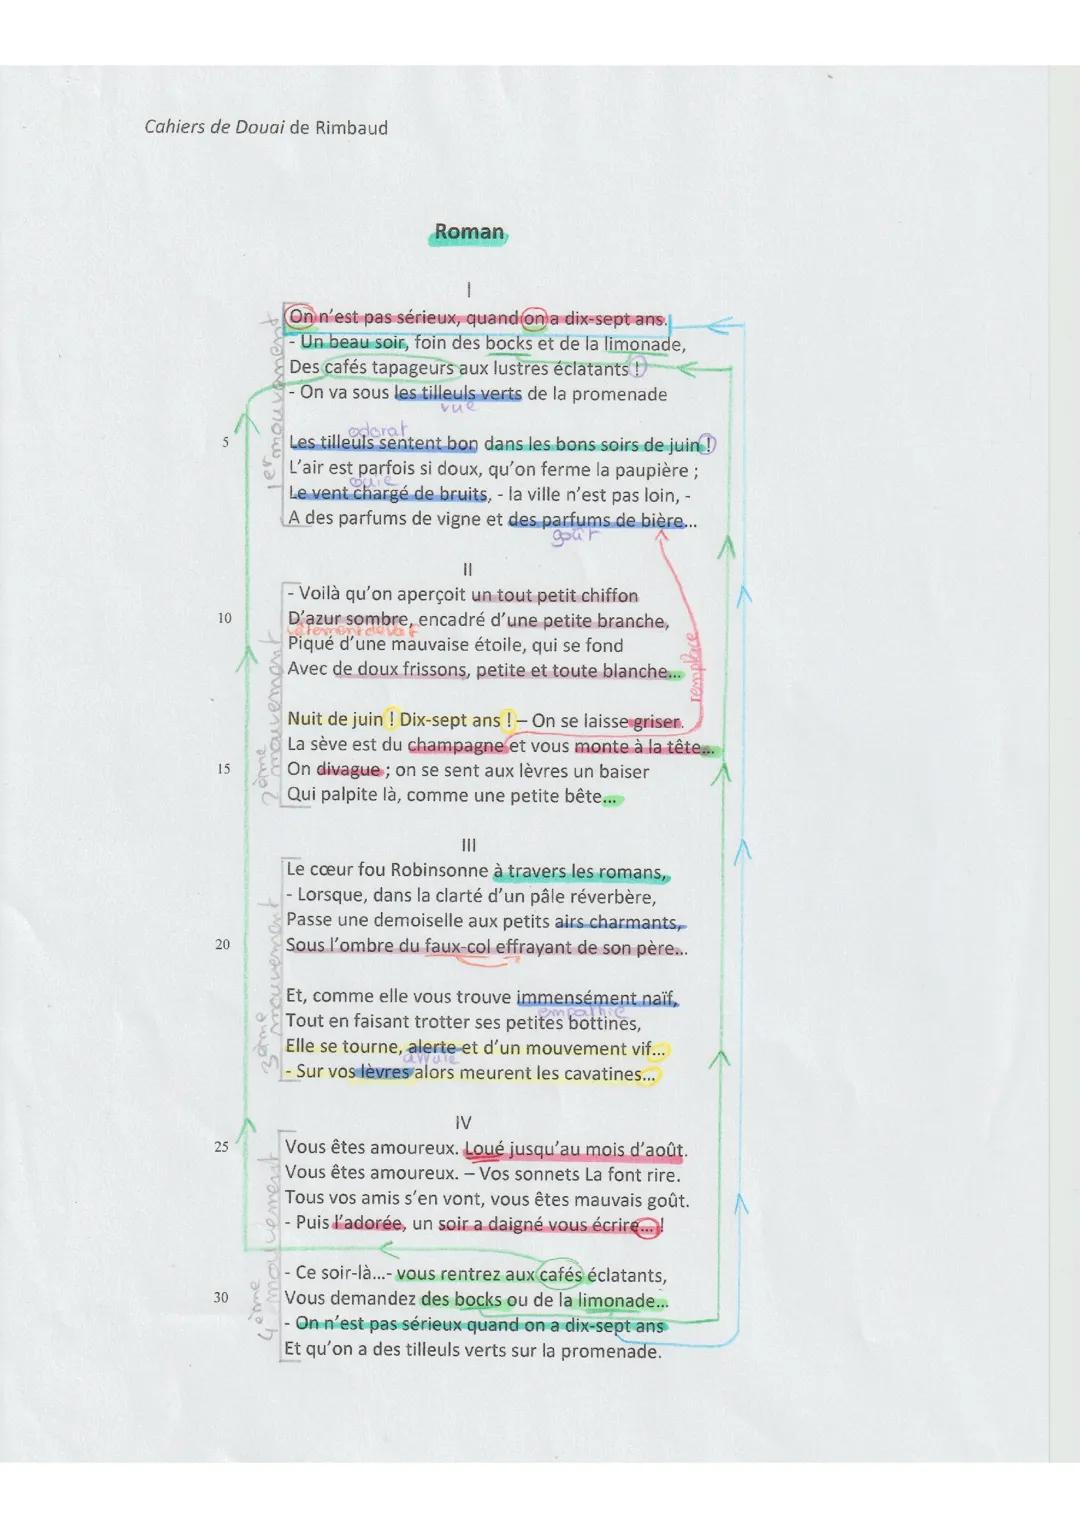 Cahiers de Douai de Rimbaud
Roman
I
On n'est pas sérieux, quand on a dix-sept ans.
- Un beau soir, foin des bocks et de la limonade,
Des cafés tapageurs aux lustres éclatants !
- On va sous les tilleuls verts de la promenade
vue
1er mouvement
odorat
5 Les tilleuls sentent bon dans les bons soirs de juin !
L'air est parfois si doux, qu'on ferme la paupière ;
ouïe
Le vent chargé de bruits, - la ville n'est pas loin, -
A des parfums de vigne et des parfums de bière...
goût
II
- Voilà qu'on aperçoit un tout petit chiffon
10 D'azur sombre, encadré d'une petite branche,
Piqué d'une mauvaise étoile, qui se fond
Avec de doux frissons, petite et toute blanche...
remplace
2ème mouvement
Nuit de juin ! Dix-sept ans ! – On se laisse griser.
La sève est du champagne et vous monte à la tête...
15 On divague ; on se sent aux lèvres un baiser
Qui palpite là, comme une petite bête...
III
Le cœur fou Robinsonne à travers les romans,
- Lorsque, dans la clarté d'un pâle réverbère,
Passe une demoiselle aux petits airs charmants,
20 Sous l'ombre du faux-col effrayant de son père...
3ème mouvement
Et, comme elle vous trouve immensément naïf,
empathie
Tout en faisant trotter ses petites bottines,
Elle se tourne, alerte et d'un mouvement vif...
- Sur vos lèvres alors meurent les cavatines...
IV
25 Vous êtes amoureux. Loué jusqu'au mois d'août.
Vous êtes amoureux. – Vos sonnets La font rire.
Tous vos amis s'en vont, vous êtes mauvais goût.
- Puis l'adorée, un soir a daigné vous écrire... !
4ème mouvement
- Ce soir-là...- vous rentrez aux cafés éclatants,
30 Vous demandez des bocks ou de la limonade...
- On n'est pas sérieux quand on a dix-sept ans
Et qu'on a des tilleuls verts sur la promenade.